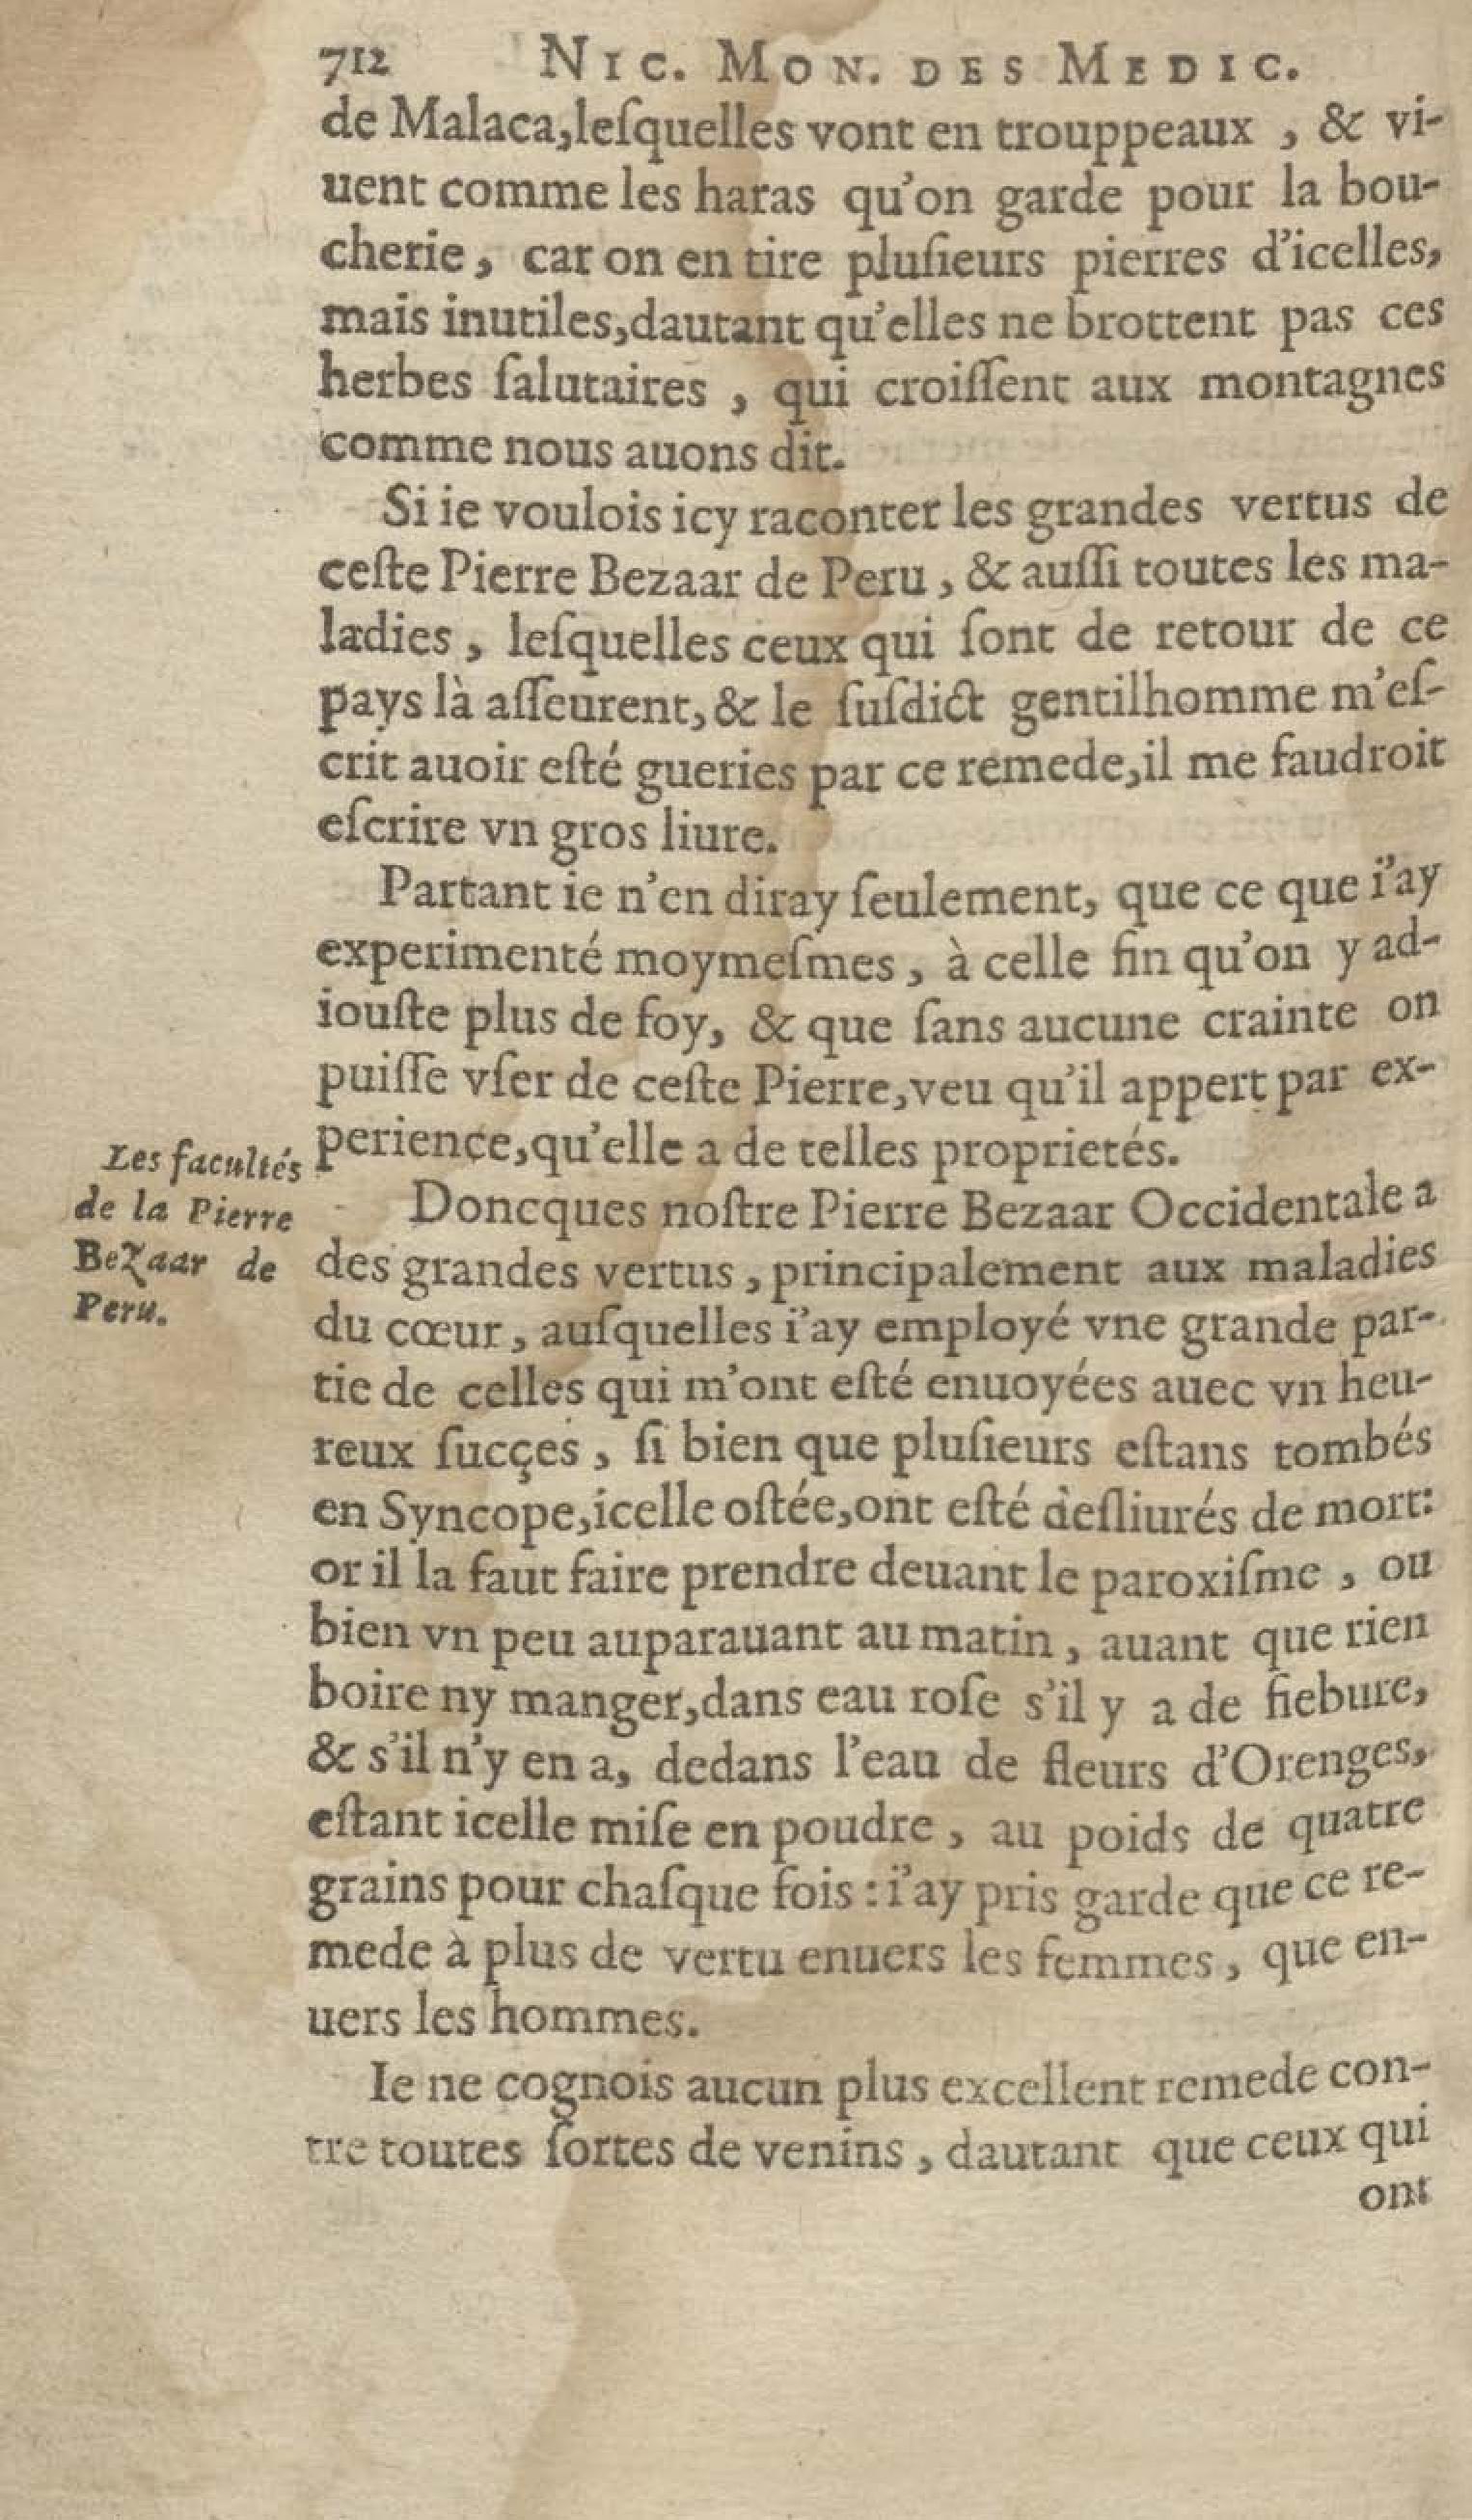 712 NIC. MON. DES MEDIC.
de Malaca,leſquelles vont en trouppeaux , & vi-
uent comme les haras qu'on garde pour la bou-
cherie , car on en tire pluſieurs pierres d'icelles,
mais inutiles,dautant qu'elles ne brottent pas ces
herbes ſalutaires , qui croiſſent aux montagnes
comme nous auons dit.
Si ie voulois icy raconter les grandes vertus de
ceſte Pierre Bezaar de Peru , & auſſi toutes les ma-
ladies , leſquelles ceux qui ſont de retour de ce
pays là aſſeurent,& le ſuſdict gentilhomme m'eſ-
crit auoir eſté gueries par ce remede,il me faudroit
eſcrire vn gros liure.
Partant ie n'en diray ſeulement, que ce que i'ay
experimenté moymeſmes , à celle fin qu'on y ad-
iouſte plus de foy, & que ſans aucune crainte on
puiſſe vſer de ceſte Pierre,veu qu'il appert par ex-
perience,qu'elle a de telles proprietés.
Les facultés
de la Pierre
Bezaar de
Peru.
Doncques noſtre Pierre Bezaar Occidentale a
des grandes vertus , principalement aux maladies
du cœur , auſquelles i'ay employé vne grande par-
tie de celles qui m'ont eſté enuoyées auec vn heu-
reux ſucçes , ſi bien que pluſieurs eſtans tombés
en Syncope,icelle oſtée,ont eſté deſliurés de mort:
or il la faut faire prendre deuant le paroxiſme , ou
bien vn peu auparauant au matin , auant que rien
boire ny manger,dans eau roſe s'il y a de fiebure,
& s'il n'y en a, dedans l'eau de fleurs d'Orenges,
eſtant icelle miſe en poudre , au poids de quatre
grains pour chaſque fois : i'ay pris garde que ce re-
mede à plus de vertu enuers les femmes , que en-
uers les hommes.
Ie ne cognois aucun plus excellent remede con-
tre toutes ſortes de venins , dautant que ceux qui
ont